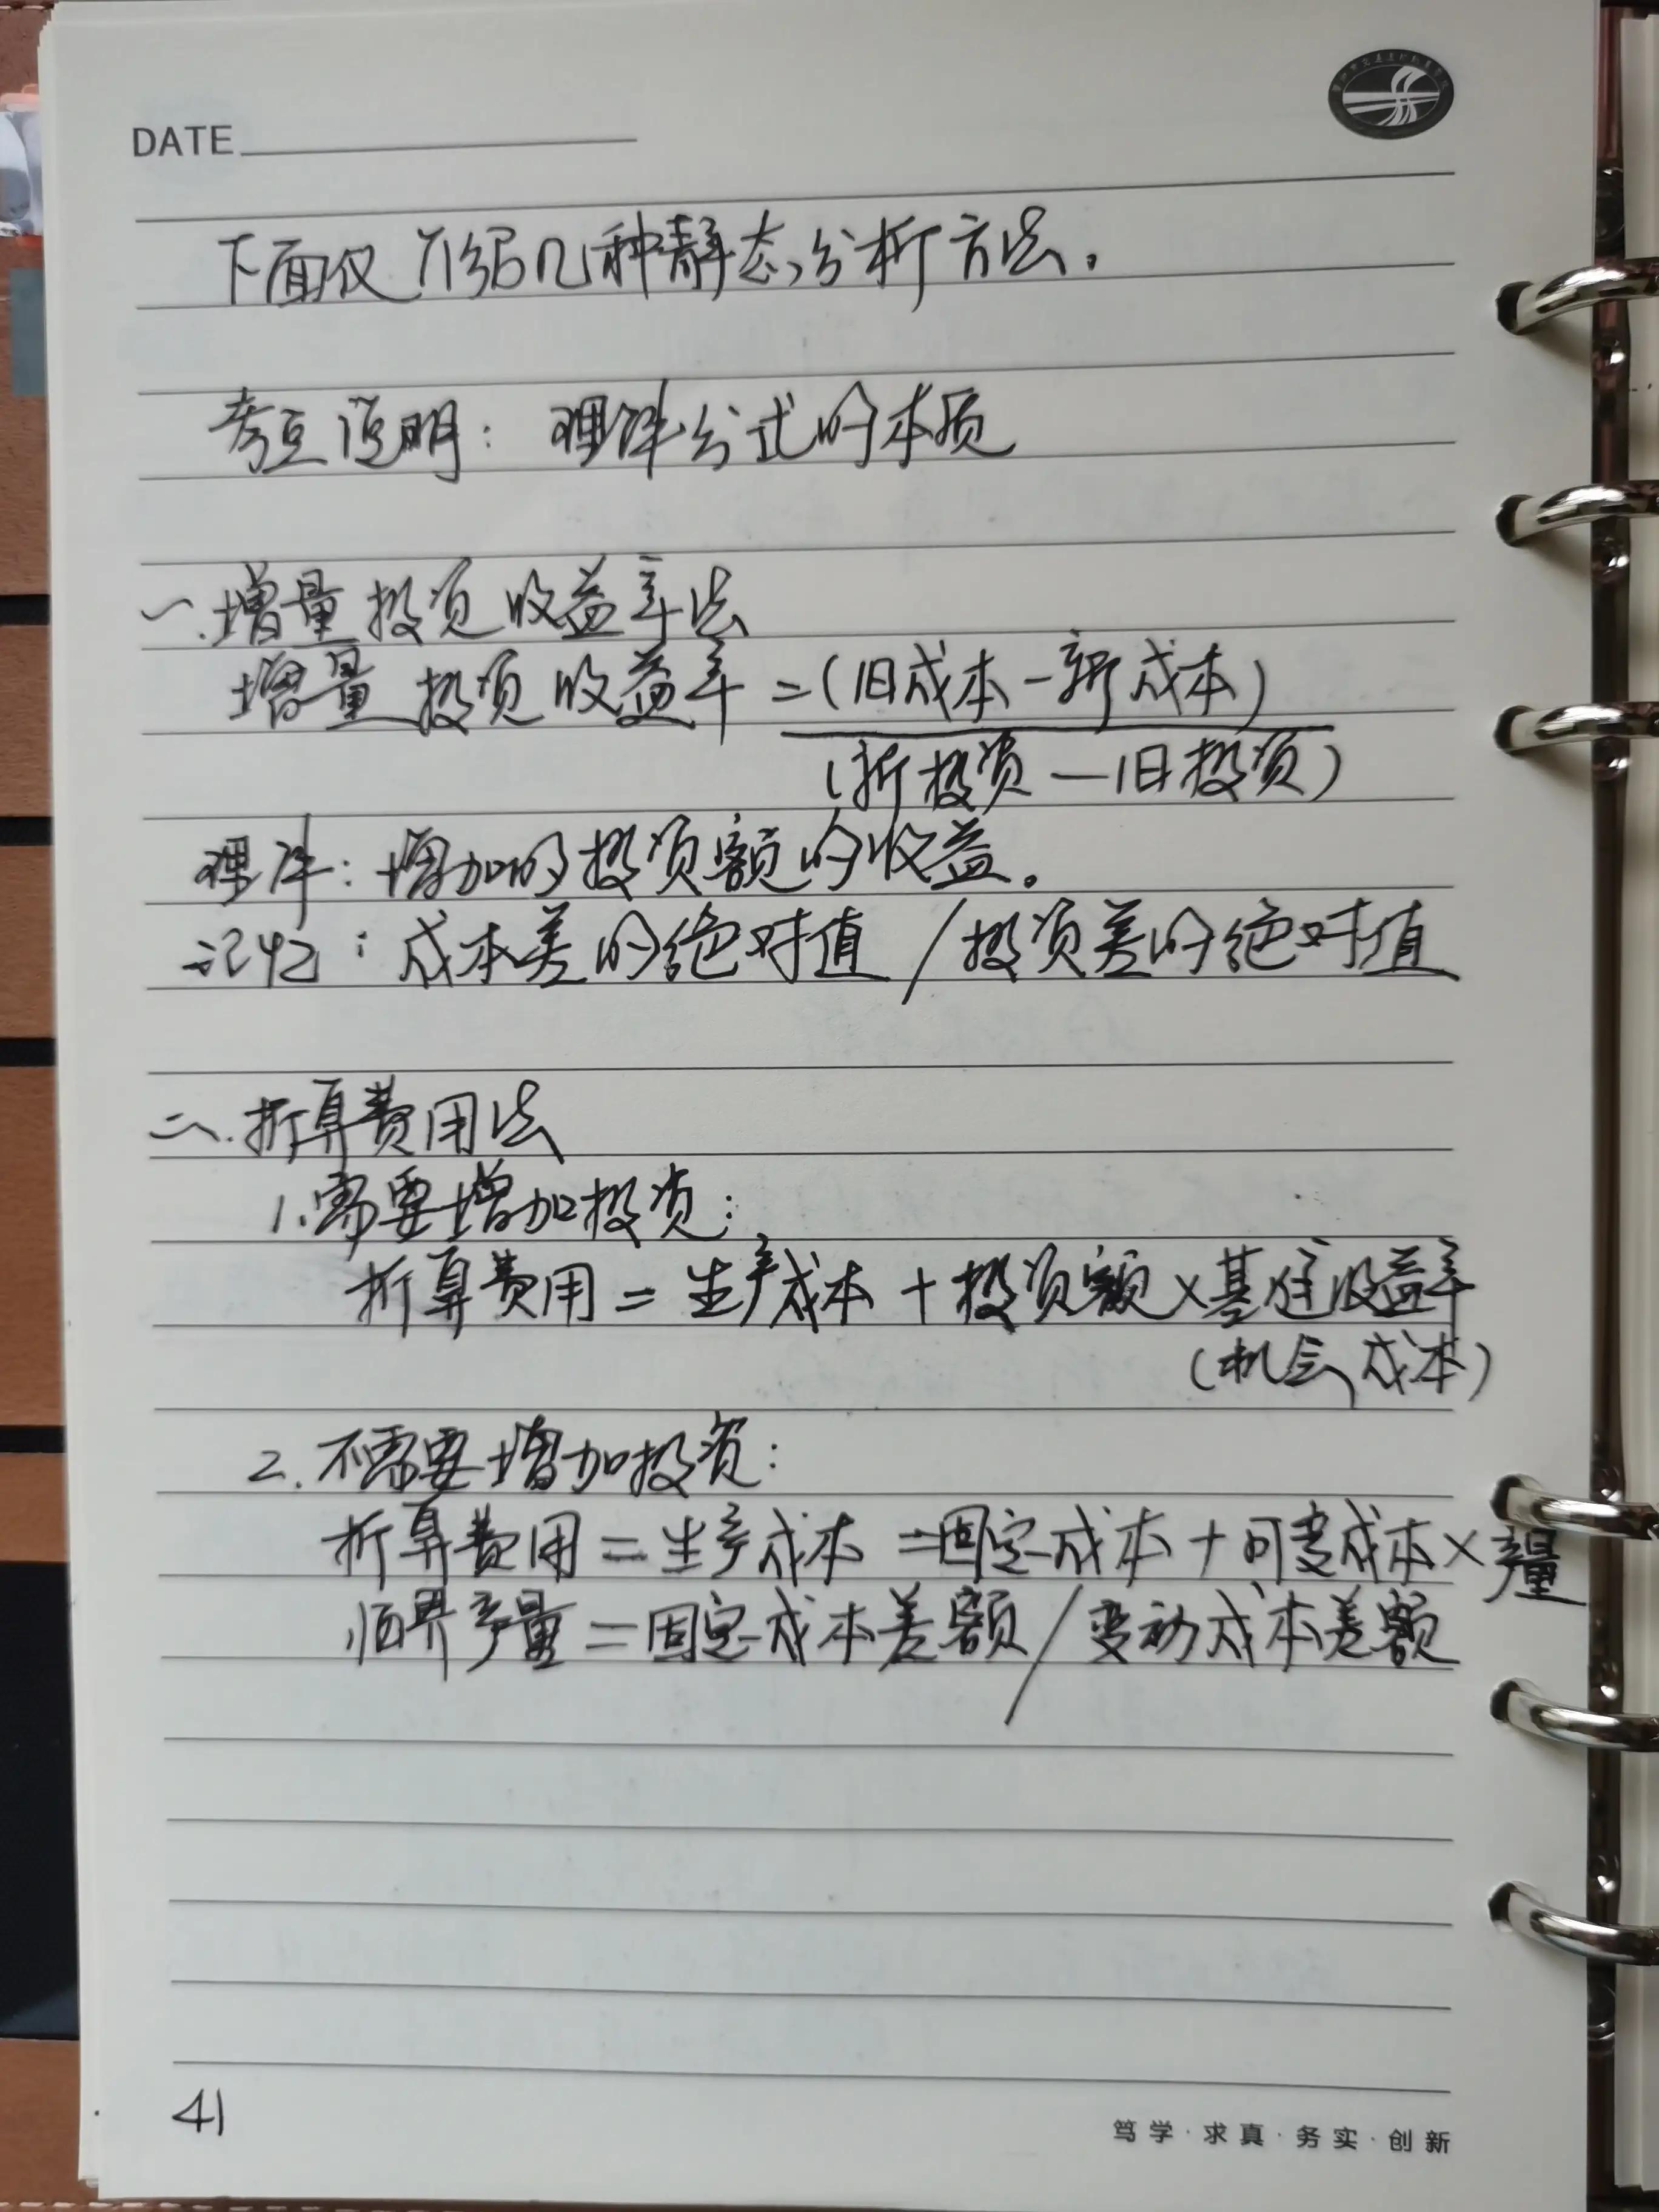 DATE
下面仅介绍几种静态分析方法。
考点说明：理解公式的本质
一.增量投资收益率法
增量投资收益率=(旧成本-新成本)
(新投资—旧投资)
理解：增加的投资额的收益。
记忆：成本差的绝对值/投资差的绝对值
二.折算费用法
1.需要增加投资：
折算费用=生产成本+投资额×基准收益率
(机会成本)
2.不需要增加投资：
折算费用=生产成本=固定成本+可变成本×产量
临界产量=固定成本差额/变动成本差额
41
笃学·求真·务实·创新